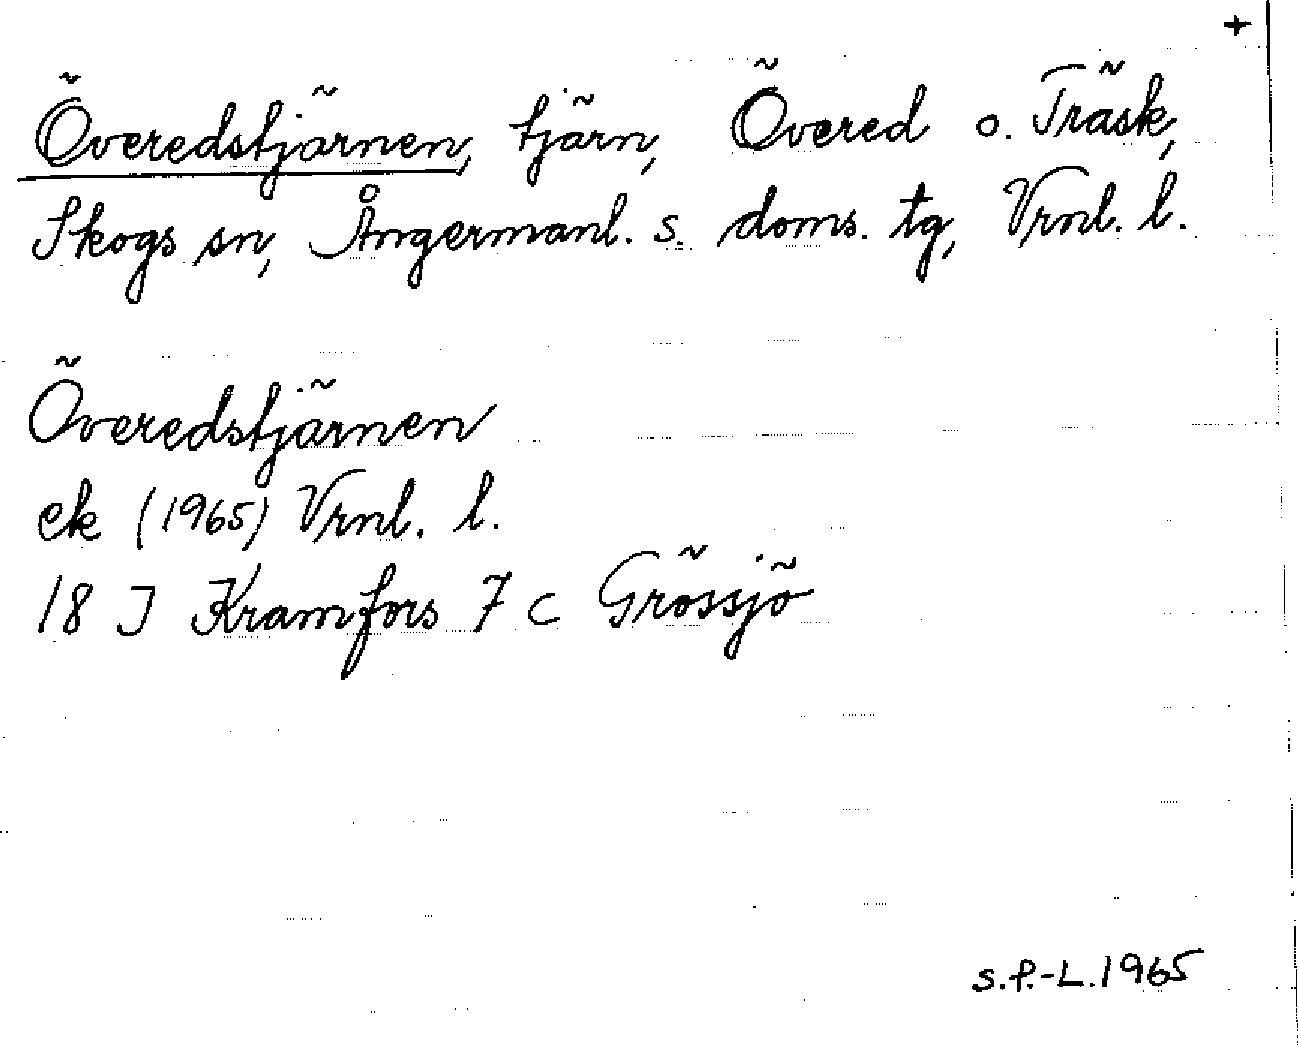 +
Överedstjärnen, tjärn, Övered o. Träsk,
Skogs sn, Ångermanl. s. doms. tg, Vrnl. l.
Överedstjärnen
ek (1965) Vrnl. l.
18 J Kramfors 7 c Grössjö
S.P.-L. 1965